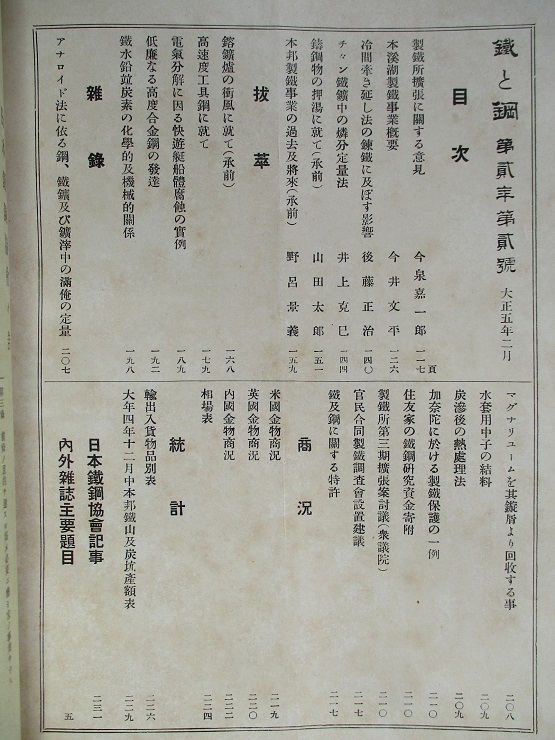 鐵と鋼 第貳年第貳號 大正五年二月
目次
製鐵所擴張に關する意見 今泉嘉一郎 一一七頁
本溪湖製鐵事業概要 今井文平 一二六
冷間牽き延し法の鍊鐵に及ぼす影響 後藤正治 一四〇
チタン鐵鑛中の燐分定量法 井上克巳 一四四
鑄鋼物の押湯に就て(承前) 山田太郎 一五一
本邦製鐵事業の過去及將來(承前) 野呂景義 一五九
拔萃
鎔鑛爐の衝風に就て(承前) 一六八
高速度工具鋼に就て 一七九
電氣分解に因る快遊艇船體腐蝕の實例 一八九
低廉なる高度合金鋼の發達 一九二
鐵水鉛竝炭素の化學的及機械的關係 一九八
雜錄
アナロイド法に依る鋼、鐵鑛及び鑛滓中の滿俺の定量 二〇七
マグナリユームを其鑢屑より回收する事 二〇八
水套用中子の結料 二〇九
炭滲後の熱處理法 二〇九
加奈陀に於ける製鐵保護の一例 二一〇
住友家の鐵鋼硏究資金寄附 二一〇
製鐵所第三期擴張案討議(衆議院) 二一〇
官民合同製鐵調査會設置建議 二一七
鐵及鋼に關する特許 二一七
商況
米國金物商況 二一九
英國金物商況 二二〇
內國金物商況 二二二
相場表 二二四
統計
輸出入貨物品別表 二二六
大年四年十二月中本邦鐵山及炭坑產額表 二二九
日本鐵鋼協會記事 二三一
內外雜誌主要題目 五